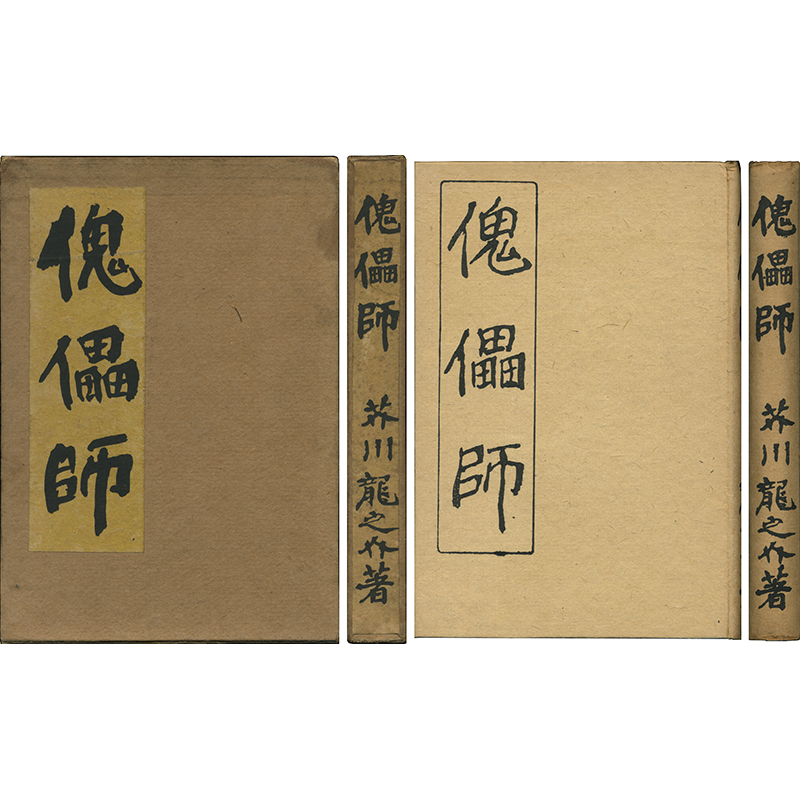 傀儡師
傀儡師 芥川龍之介著
傀儡師
傀儡師 芥川龍之介著